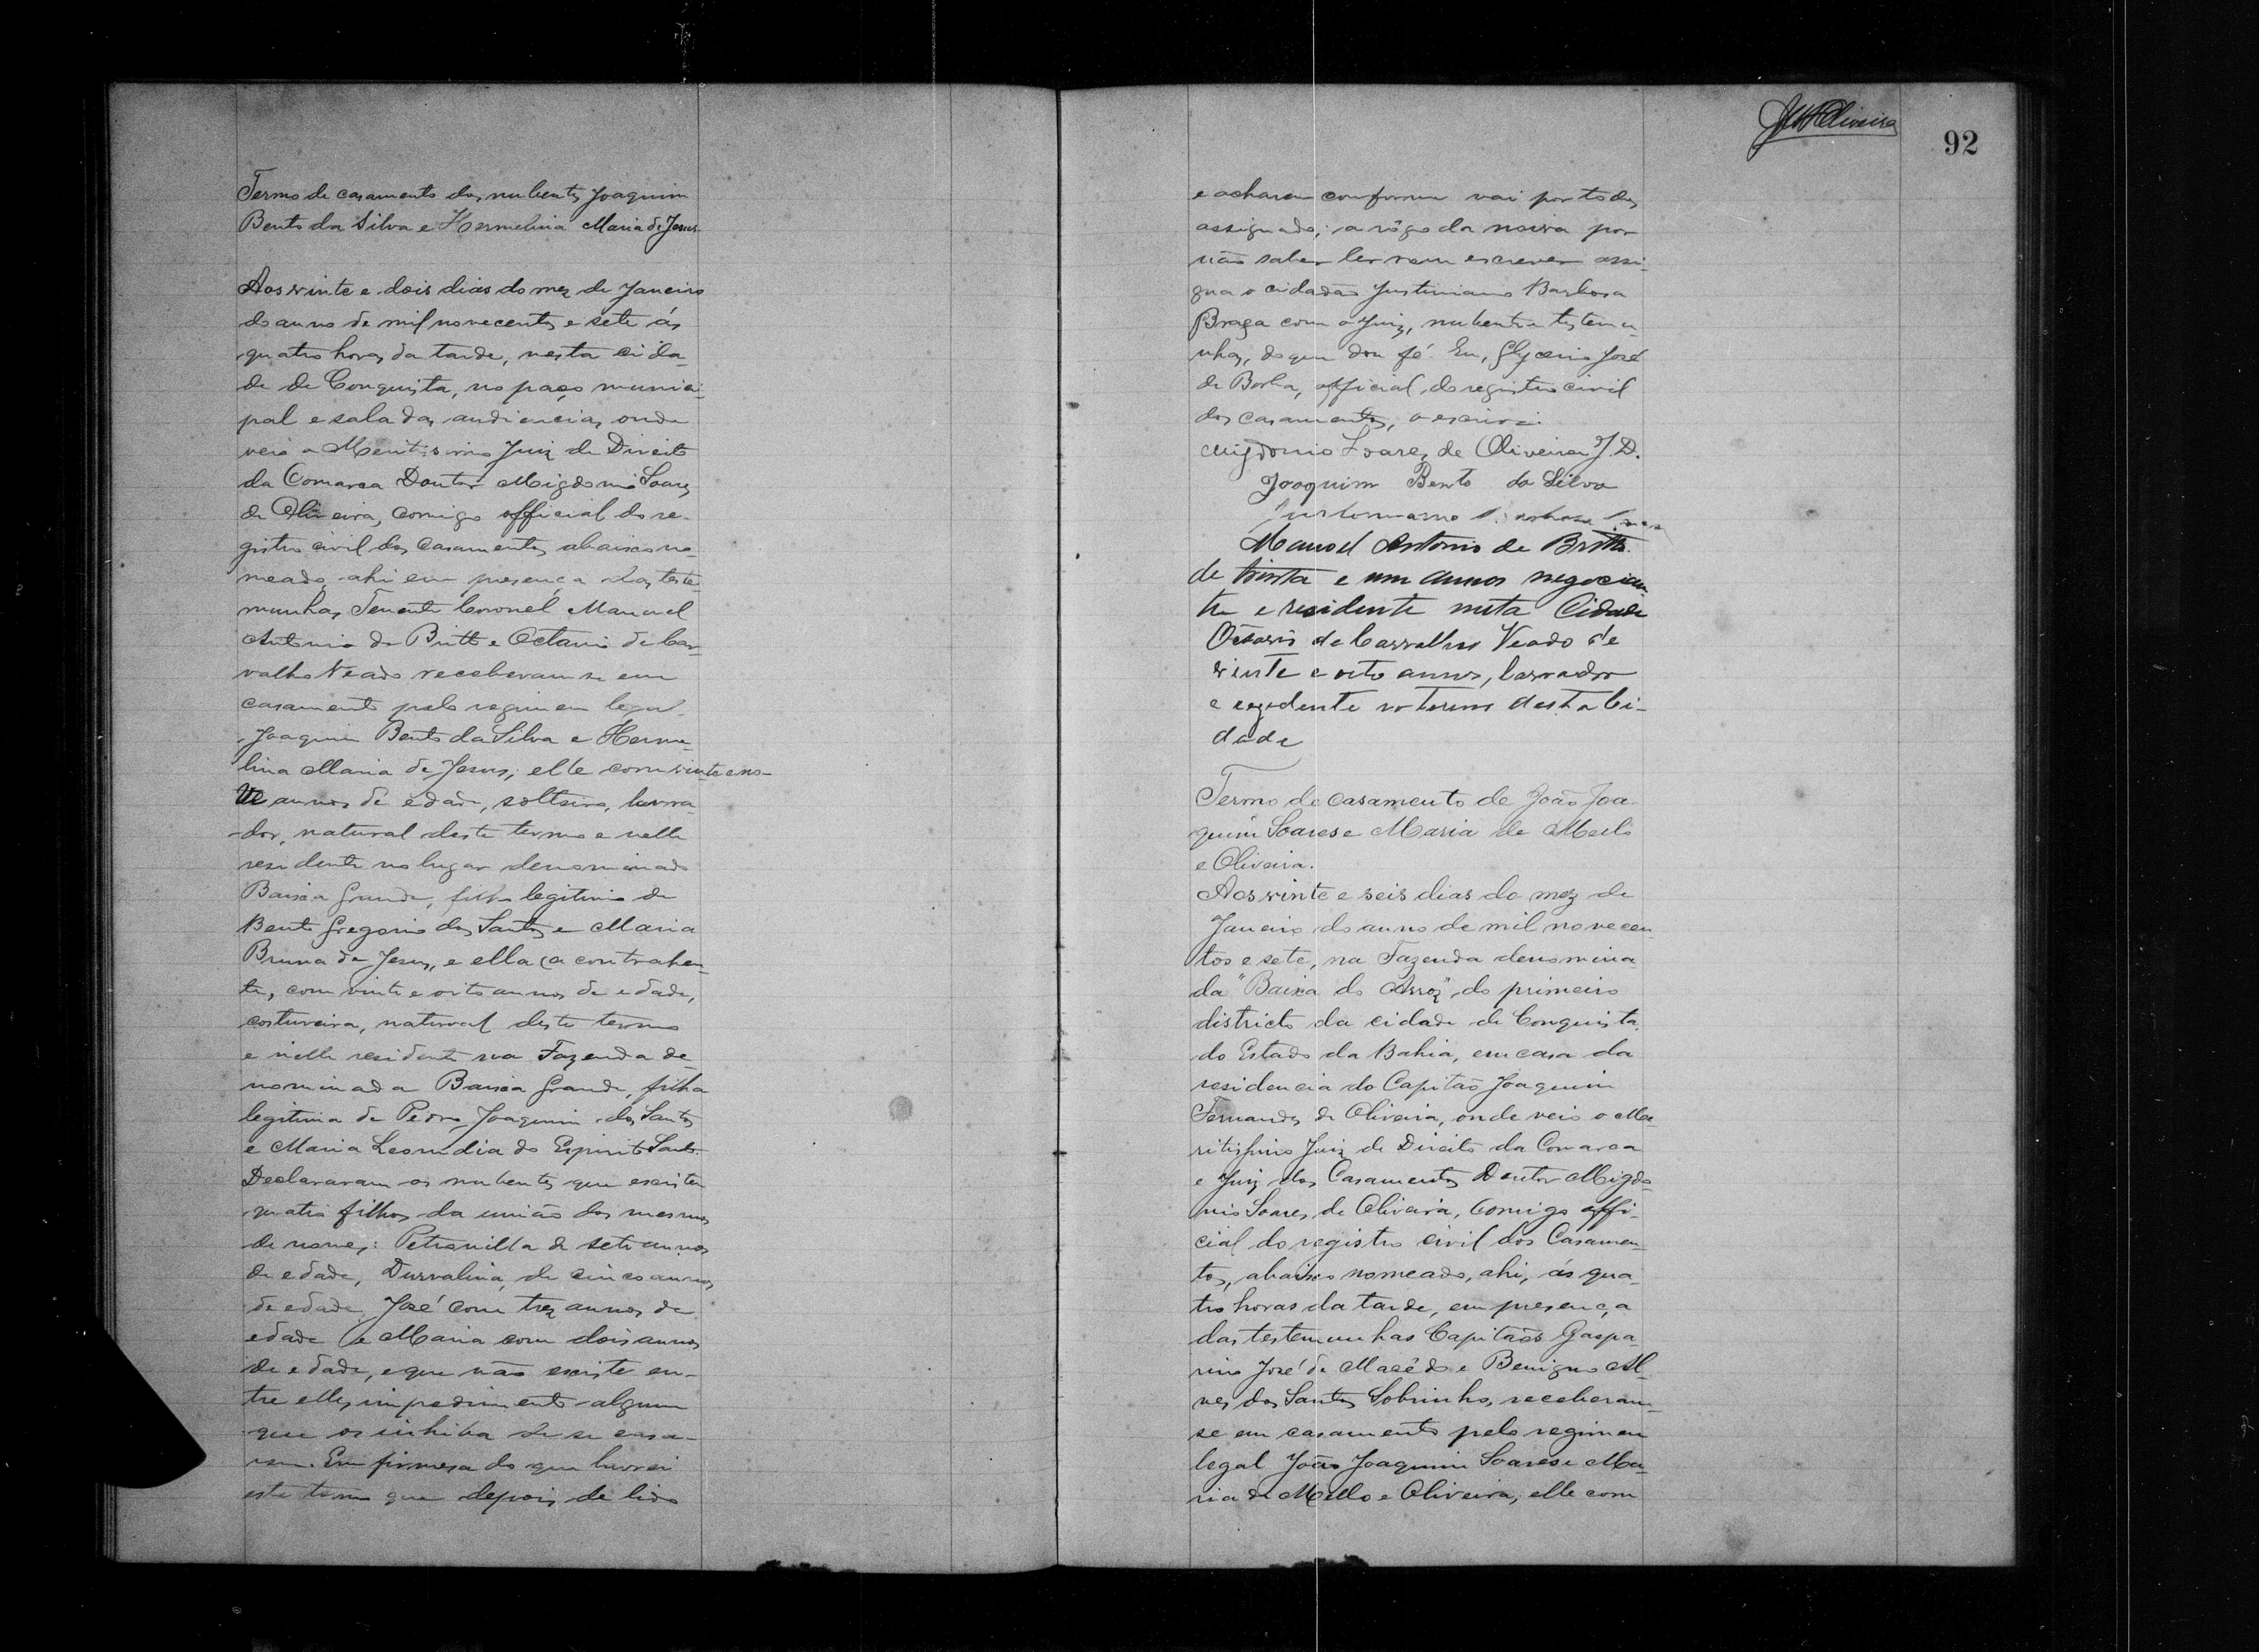 Termo de casamento dos nubentes Joaquim
Bento da Silva e Hermelina Maria de Jesus
Aos vinte e dois dias do mez de Janeiro
do anno de mil novecentos e sete ás
quatro horas da tarde, nesta cida-
de de Conquista, no paço munici-
pal e sala das audiencias, onde
veio o Meritissimo Juiz de Direito
da Comarca Doutor Migdonio Soares
de Oliveira, comigo official do re-
gistro civil dos Casamentos abaixo no-
meado, ahi em presença das teste-
munhas Tenente Coronel Manoel
Antonio de Britto e Octavio de Car-
valho Veado receberam-se em
casamento pelo regimen legal
Joaquim Bento da Silva e Herme-
lina Maria de Jesus; elle com vinte e no-
ve annos de edade, solteiro, lavra-
dor, natural deste termo e nelle
residente no lugar denominado
Baixa Grande, filho legitimo de
Bento Gregorio dos Santos e Maria
Bruna de Jesus, e ella (a contrahen-
te, com vinte e oito annos de edade,
costureira, natural deste termo
e nelle residente na Fazenda de-
nominada Baixa Grande, filha
legitima de Pedro Joaquim dos Santos
e Maria Leonidia do Espirito Santo.
Declararam os nubentes que existem
quatro filhos da união dos mesmos
de nomes: Petronilla de sete annos
de edade, Durvalina, de cinco annos
de edade, José com trez annos de
edade e Maria com dois annos
de edade, e que não existe en-
tre elles impedimento algum
que os inhiba de se casa-
rem. Em firmesa do que lavrei
este termo que depois de lido
JMSOliveira
92
e acharem conforme vai por todos
assignado; a rôgo da noiva por
não saber ler nem escrever assi-
gna o cidadão Justiniano Barbosa
Braga com o Juiz, nubente e testemu-
nhas, do que dou fé. Eu, Glycerio José
de Borba, official do registro civil
dos casamentos, o escrivi.
Migdonio Soares de Oliveira J. D.
Joaquim Bento da Silva
Justiniano Barbosa Braga
Manoel Antonio de Britto.
de trinta e um annos negocian
te e residente nesta Cidade
Octavio de Carvalho Veado de
vinte e oito annos, lavrador
e rezedente no termo desta Ci-
dade
Termo do casamento de João Joa-
quim Soares e Maria de Mello
e Oliveira.
Aos vinte e seis dias do mez de
Janeiro do anno de mil novecen-
tos e sete, na Fazenda denomina
da "Baixa do Arroz", do primeiro
districto da cidade de Conquista,
do Estado da Bahia, em casa da
residencia do Capitão Joaquim
Fernandes de Oliveira, onde veio o Me-
ritissimo Juiz de Direito da Comarca
e Juiz dos Casamentos Doutor Migdo-
nio Soares de Oliveira, comigo offi-
cial do registro civil dos Casamen-
tos, abaixo nomeado, ahi, ás qua-
tro horas da tarde, em presença
das testemunhas Capitãos Gaspa-
rino José de Macêdo e Benigno Al-
ves dos Santos Sobrinho, receberam-
se em casamento pelo regimen
legal João Joaquim Soares e Ma-
ria de Mello e Oliveira, elle com